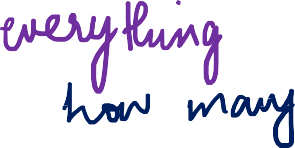 everything
how many